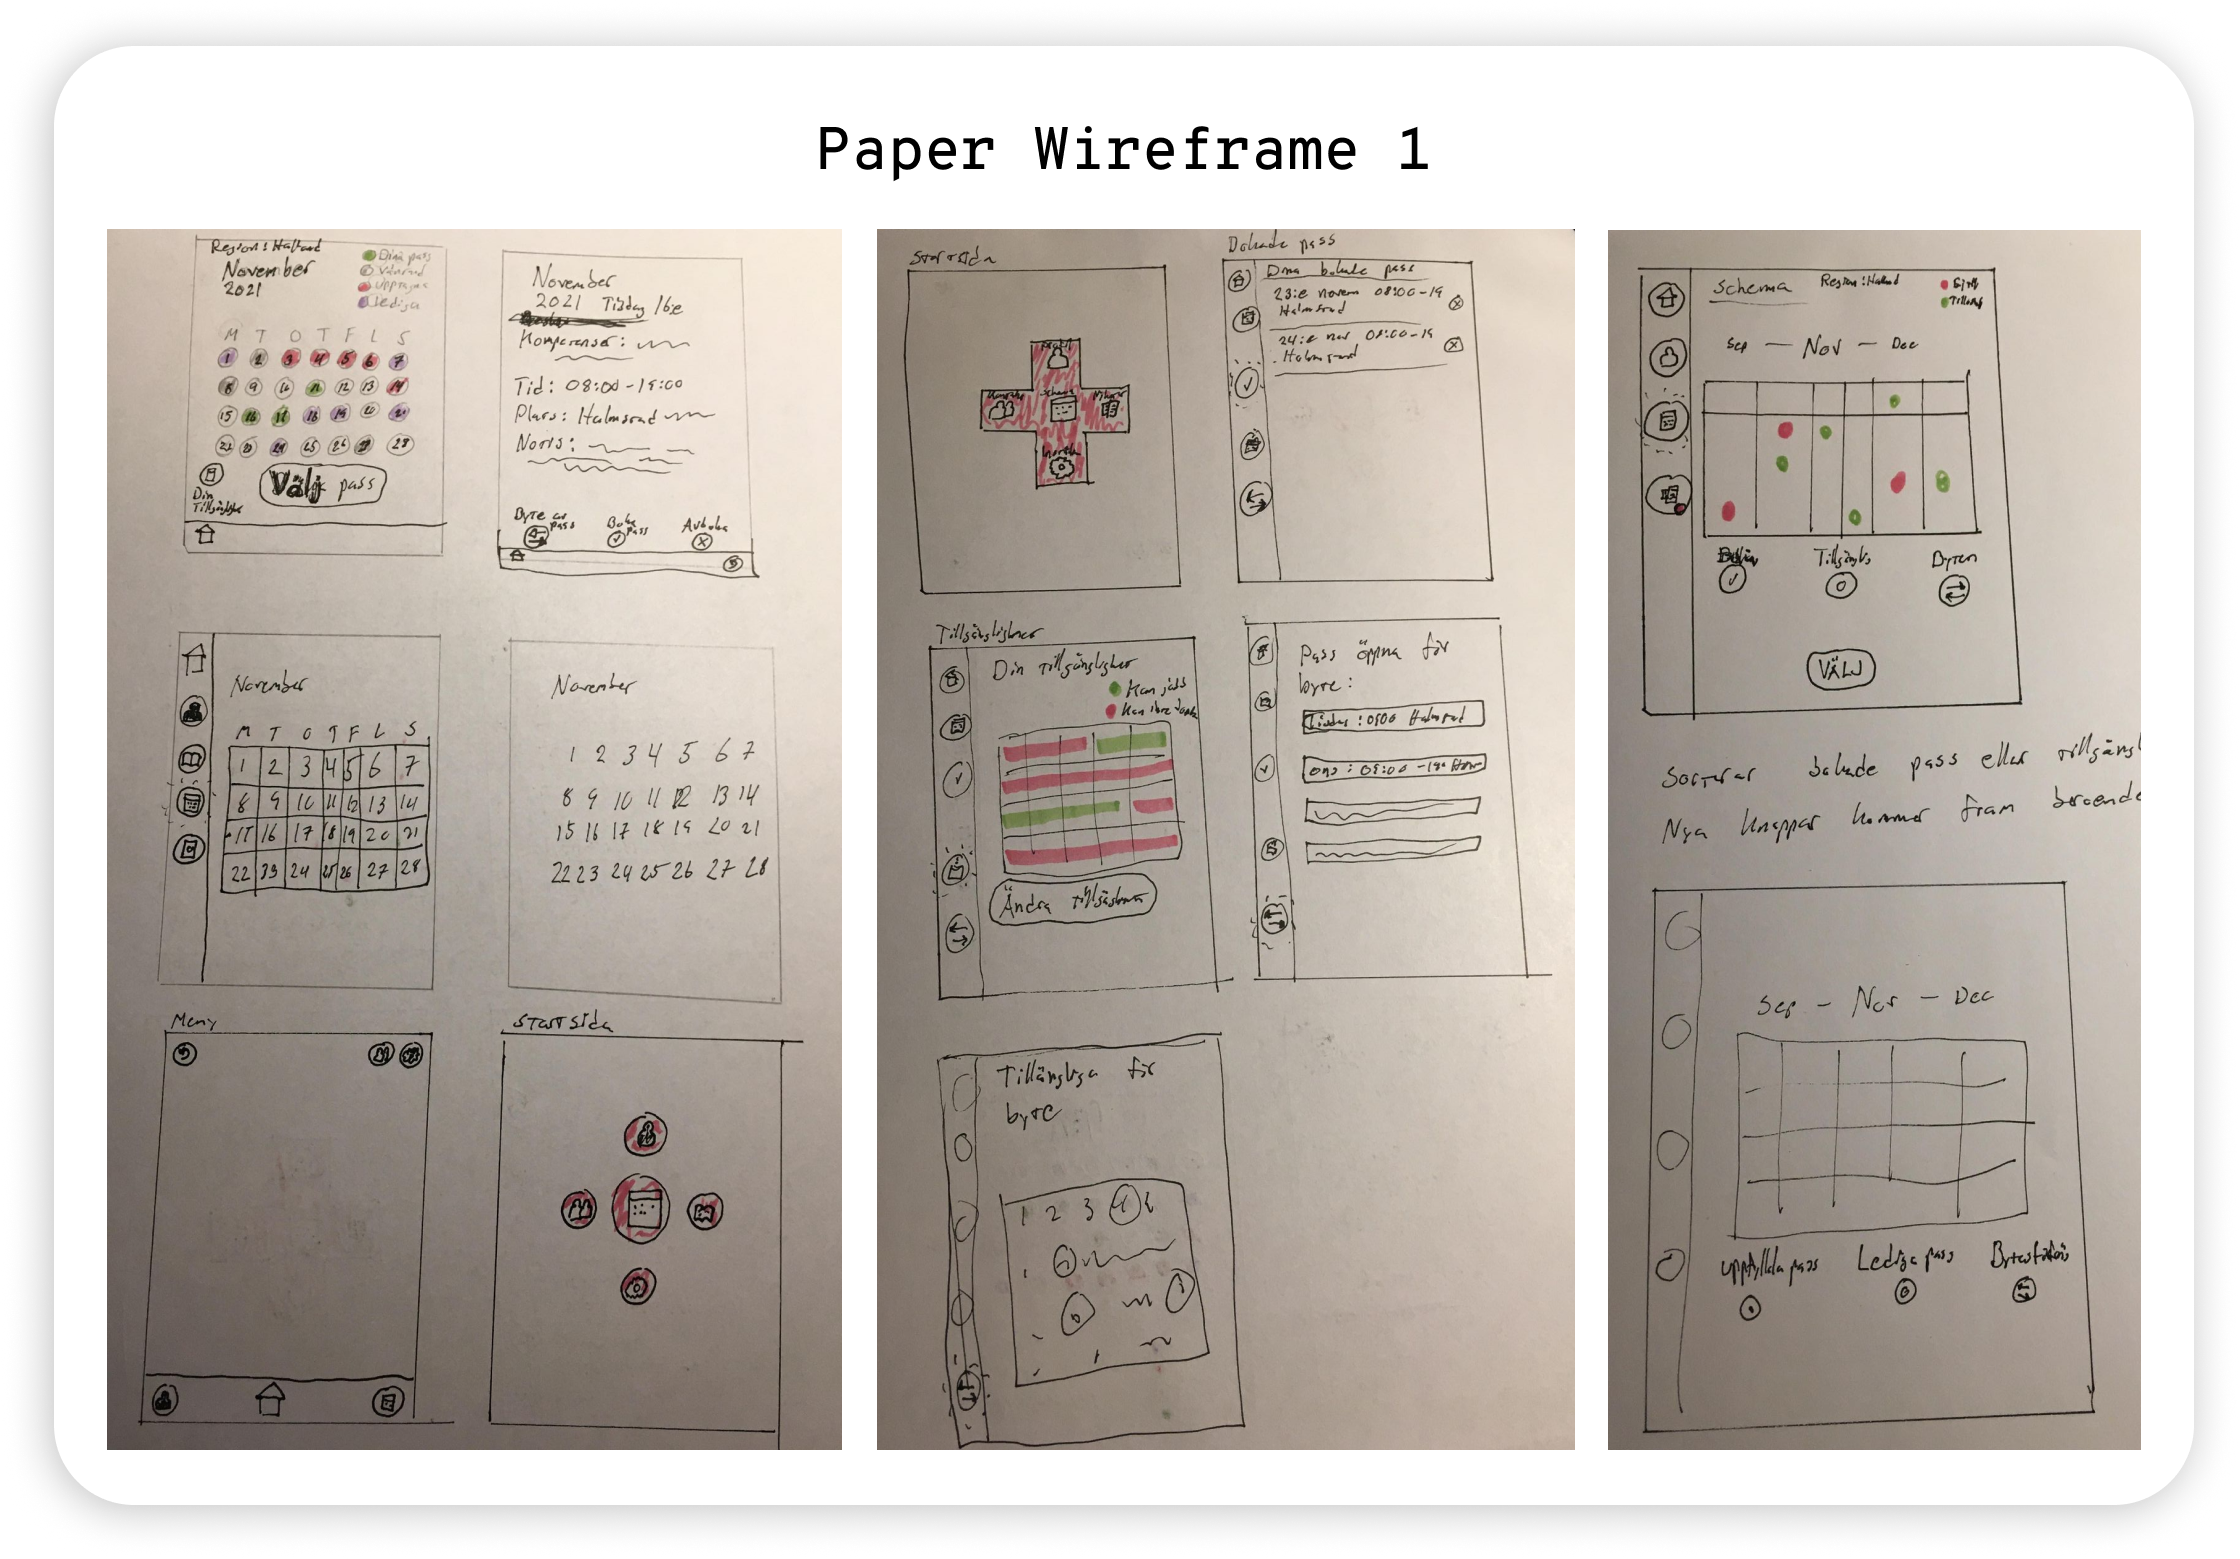 Paper Wireframe 1
Region: Halland
November
2021
Dina pass
Lediga
M T O T F L S
1 2 3 4 5 6 7
8 9 10 11 12 13 14
15 16 17 18 19 20 21
22 23 24 25 26 27 28
Din
Välj pass
November
2021 Tisdag 16:e
Kompetenser:
Tid: 08:00-19:00
Plats: Halmstad
Notis:
Byte av pass
Boka pass
Avboka
November
M T O T F L S
1 2 3 4 5 6 7
8 9 10 11 12 13 14
15 16 17 18 19 20 21
22 23 24 25 26 27 28
November
1 2 3 4 5 6 7
8 9 10 11 12 13 14
15 16 17 18 19 20 21
22 23 24 25 26 27 28
Meny
Startsida
Startsida
Schema
Bokade pass
Dina bokade pass
23:e novem 08:00-19
Halmstad
24:e nov 08:00-19
Halmstad
Tillgänglighet
Din tillgänglighet
Kan jobb
Ändra
Pass öppna för
byte:
Tisdag : 0800 Halmstad
Tillgängliga för
byte
1 2 3 4
Schema
Region: Halland
Sep - Nov - Dec
Byten
VÄLJ
Sorterar bokade pass eller tillgängl
Nya knappar kommer fram beroende
Sep - Nov - Dec
Uppfyllda pass
Lediga pass